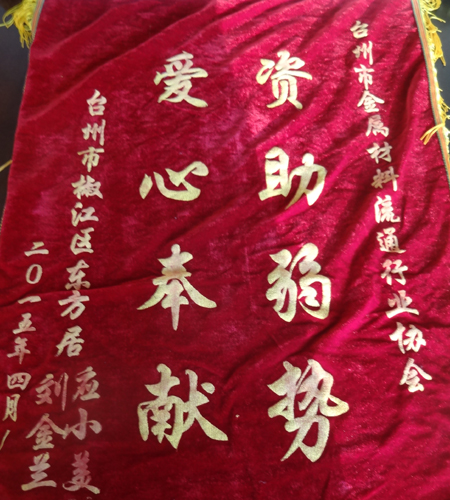 台州市金属材料流通行业协会
资助弱势
爱心奉献
台州市椒江区东方居
孟小美
刘金兰
二〇一五年四月